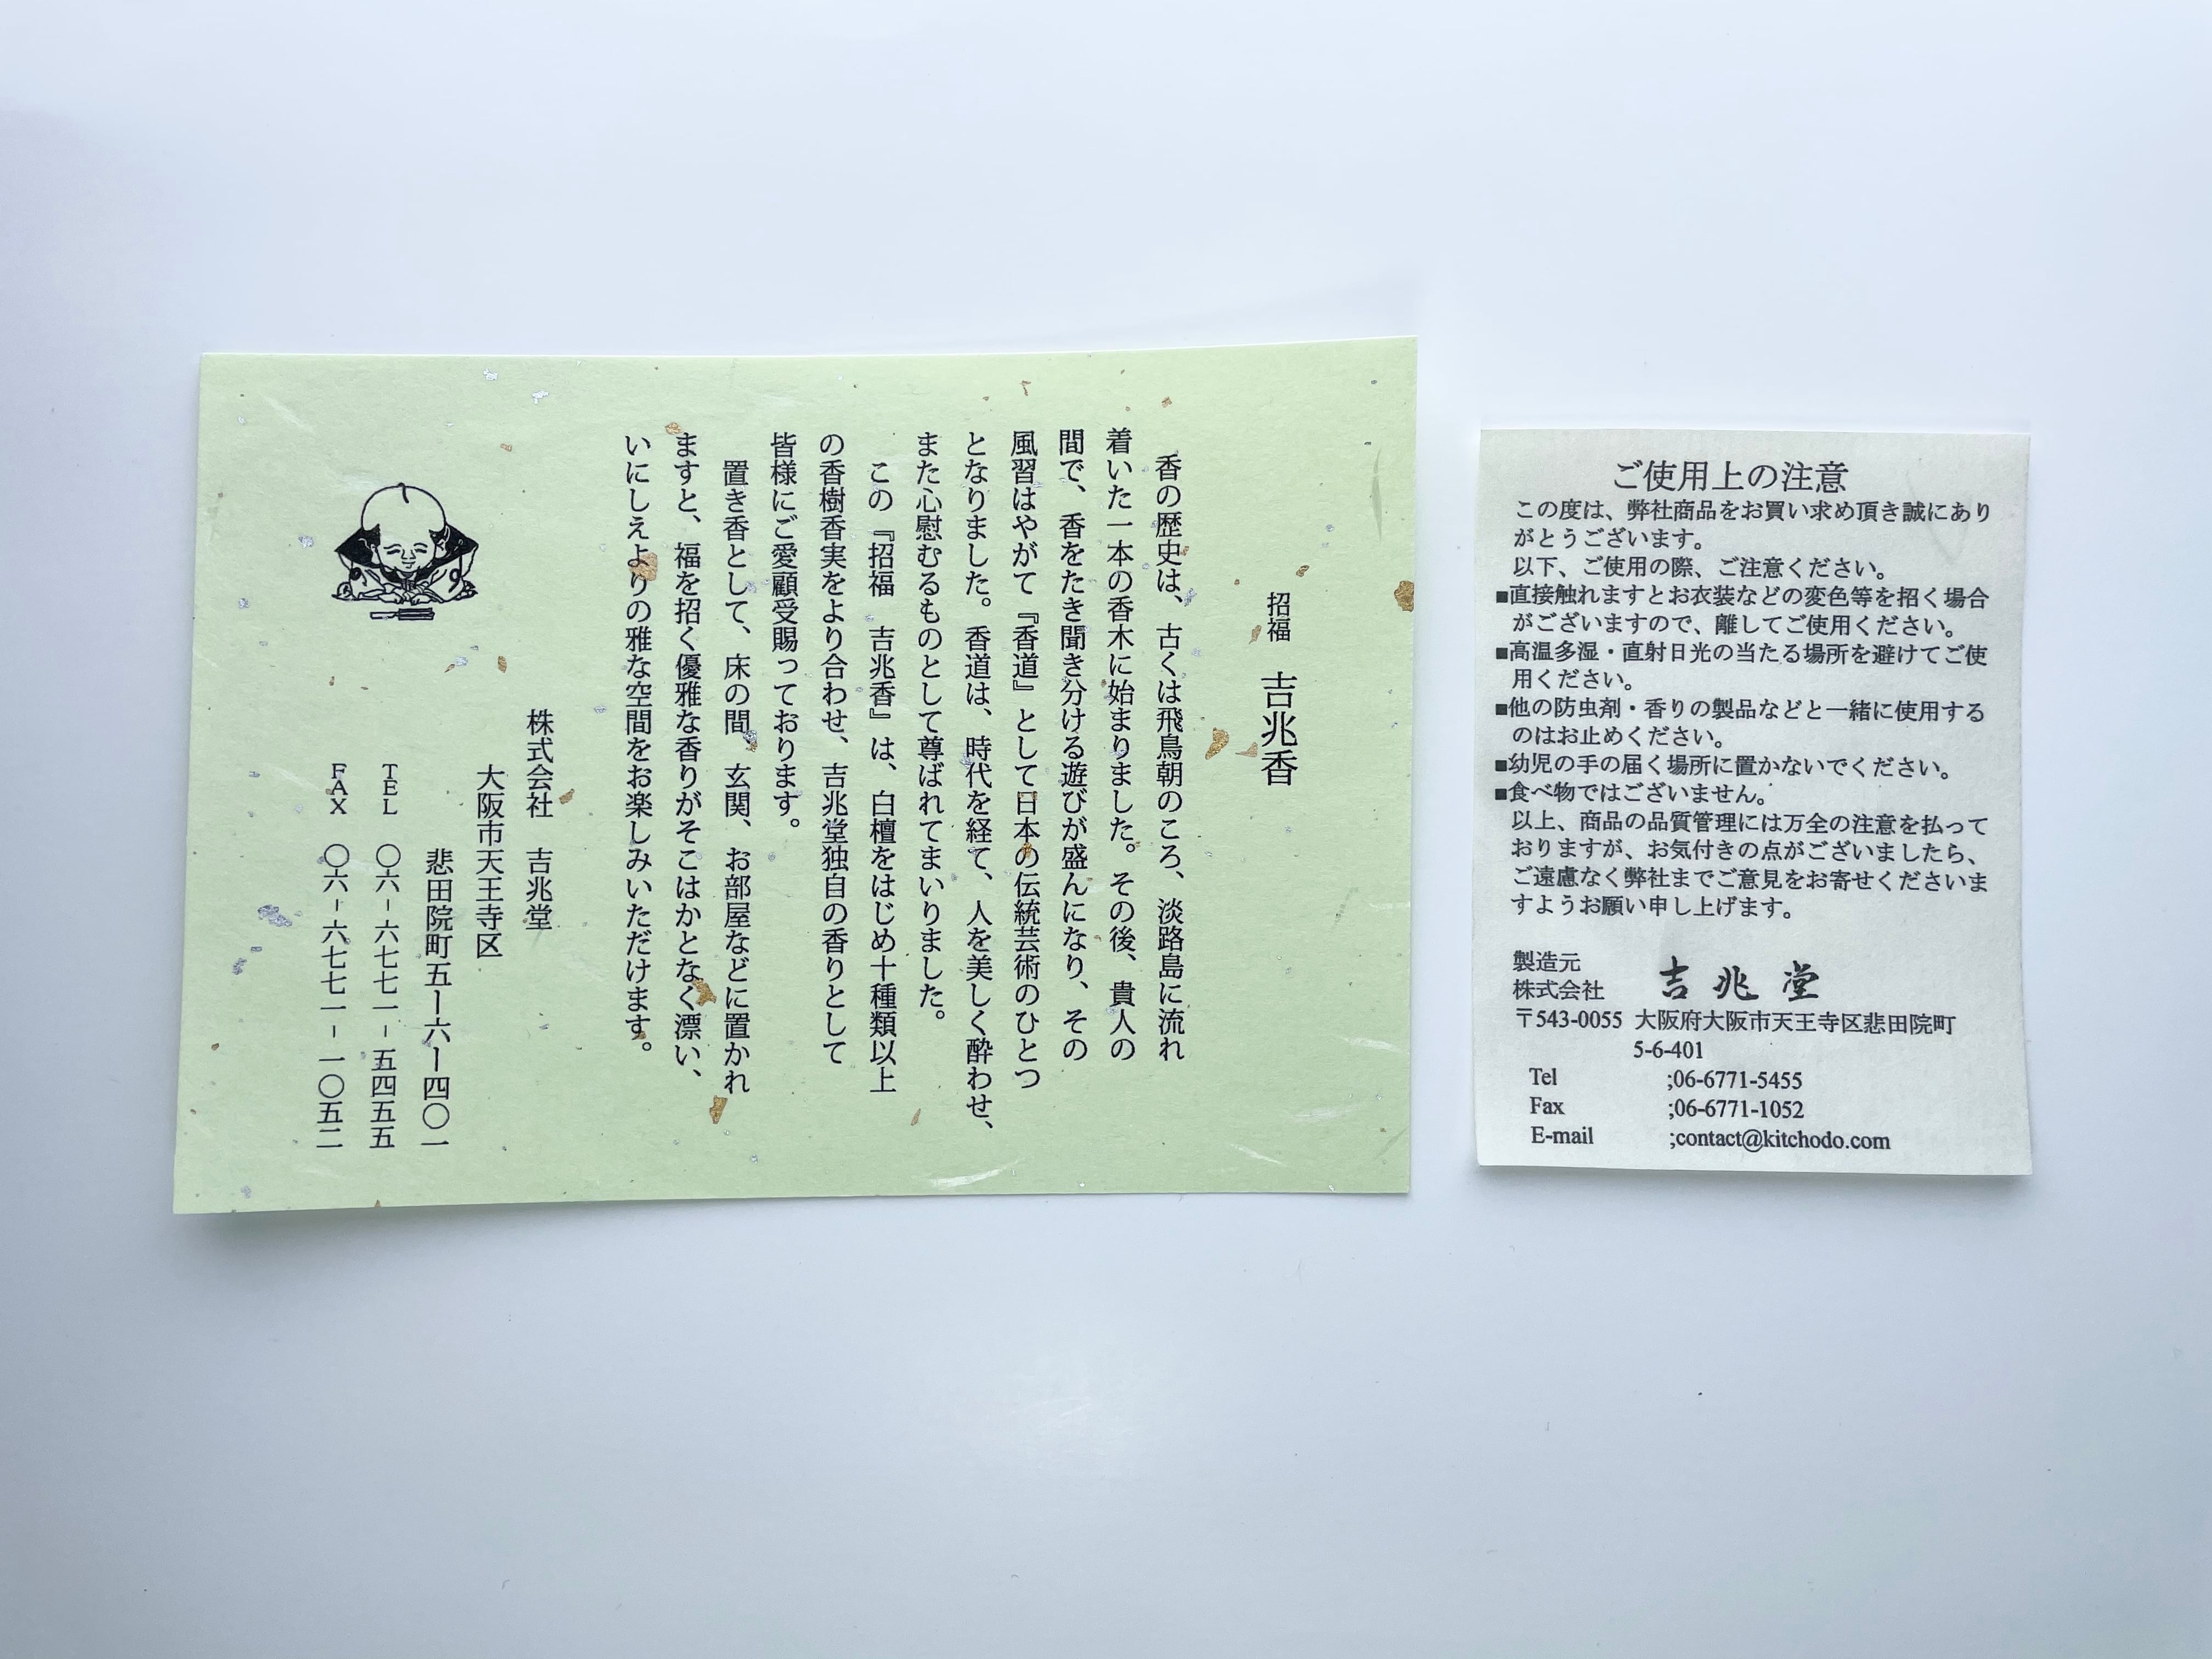 招福　吉兆香
香の歴史は、古くは飛鳥朝のころ、淡路島に流れ
着いた一本の香木に始まりました。その後、貴人の
間で、香をたき聞き分ける遊びが盛んになり、その
風習はやがて『香道』として日本の伝統芸術のひとつ
となりました。香道は、時代を経て、人を美しく酔わせ、
また心慰むるものとして尊ばれてまいりました。
この『招福　吉兆香』は、白檀をはじめ十種類以上
の香樹香実をより合わせ、吉兆堂独自の香りとして
皆様にご愛顧受賜っております。
置き香として、床の間、玄関、お部屋などに置かれ
ますと、福を招く優雅な香りがそこはかとなく漂い、
いにしえよりの雅な空間をお楽しみいただけます。
株式会社　吉兆堂
大阪市天王寺区
悲田院町五ー六ー四〇一
TEL　〇六-六七七一-五四五五
FAX　〇六-六七七一-一〇五二
ご使用上の注意
この度は、弊社商品をお買い求め頂き誠にあり
がとうございます。
以下、ご使用の際、ご注意ください。
■直接触れますとお衣装などの変色等を招く場合
がございますので、離してご使用ください。
■高温多湿・直射日光の当たる場所を避けてご使
用ください。
■他の防虫剤・香りの製品などと一緒に使用する
のはお止めください。
■幼児の手の届く場所に置かないでください。
■食べ物ではございません。
以上、商品の品質管理には万全の注意を払って
おりますが、お気付きの点がございましたら、
ご遠慮なく弊社までご意見をお寄せくださいま
すようお願い申し上げます。
製造元
株式会社　吉兆堂
〒543-0055 大阪府大阪市天王寺区悲田院町
5-6-401
Tel ;06-6771-5455
Fax ;06-6771-1052
E-mail ;contact@kitchodo.com